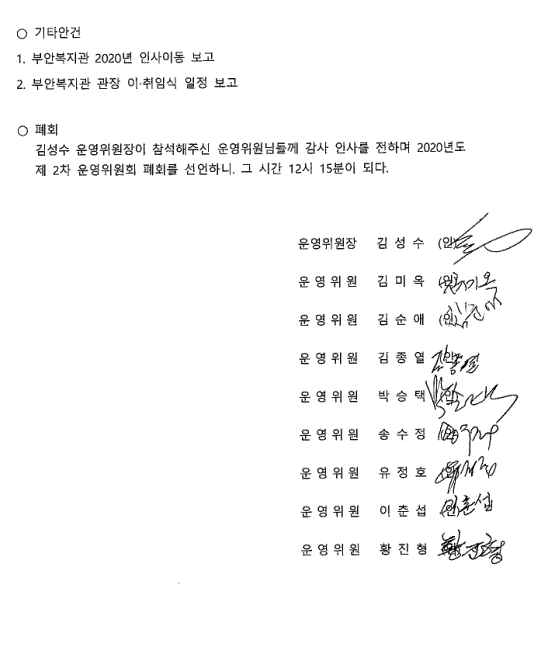 ○ 기타안건
1. 부안복지관 2020년 인사이동 보고
2. 부안복지관 관장 이·취임식 일정 보고
○ 폐회
김성수 운영위원장이 참석해주신 운영위원님들께 감사 인사를 전하며 2020년도
제 2차 운영위원회 폐회를 선언하니. 그 시간 12시 15분이 되다.
운영위원장 김 성 수 (인)
운 영 위 원 김 미 옥 (인)
운 영 위 원 김 순 애 (인)
운 영 위 원 김 종 열 (인)
운 영 위 원 박 승 택 (인)
운 영 위 원 송 수 정 (인)
운 영 위 원 유 정 호
운 영 위 원 이 춘 섭 (인)
운 영 위 원 황 진 형